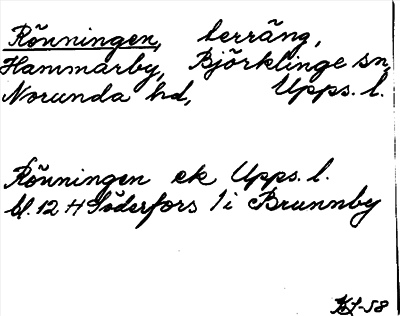 Rönningen, terräng,
Hammarby, Björklinge sn,
Norunda hd, Upps. l.
Rönningen ek Upps. l.
bl. 12 H Söderfors 1 i Brunnby
KL-58